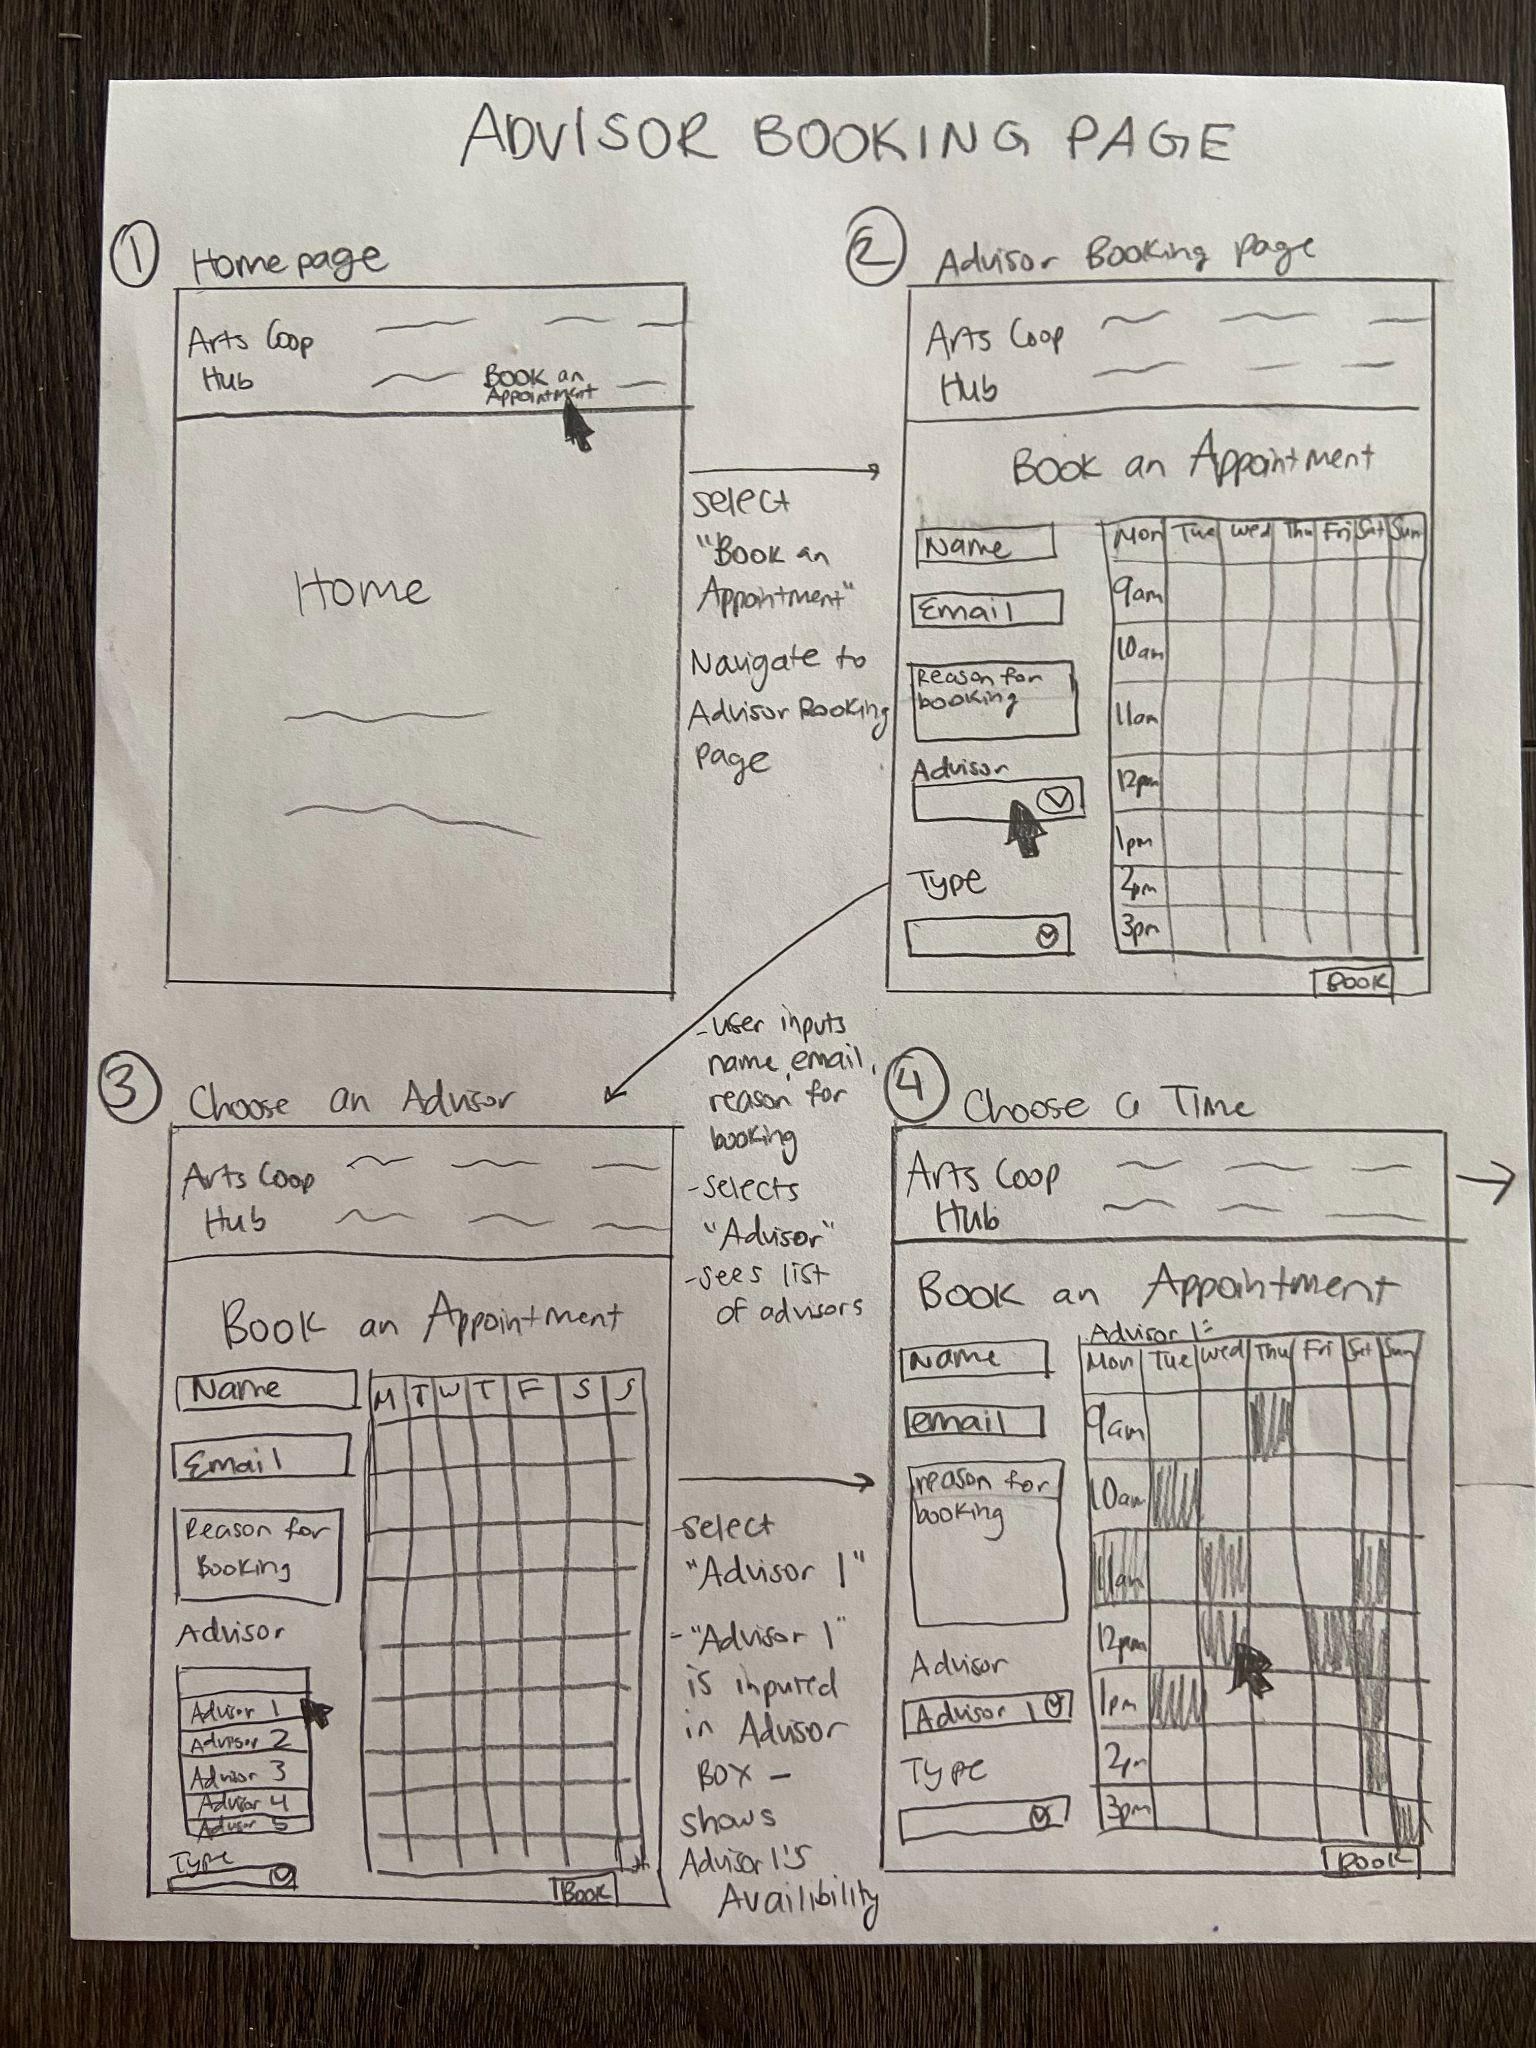 ADVISOR BOOKING PAGE
① Homepage
Arts Coop
Hub
Book an
Appointment
Home
select
"Book an
Appointment"
Navigate to
Advisor Booking
page
② Advisor Booking page
Arts Coop
Hub
Book an Appointment
Name
Email
Reason for
booking
Advisor
Type
Mon Tue Wed Thu Fri Sat Sun
9am
10am
11am
12pm
1pm
2pm
3pm
BOOK
- user inputs
name, email,
reason for
booking
- selects
"Advisor"
- sees list
of advisors
③ Choose an Advisor
Arts Coop
Hub
Book an Appointment
Name
Email
Reason for
Booking
Advisor
Advisor 1
Advisor 2
Advisor 3
Advisor 4
Advisor 5
Type
M T W T F S S
Book
- select
"Advisor 1"
- "Advisor 1"
is inputed
in Advisor
Box -
shows
Advisor 1's
Availibility
④ Choose a Time
Arts Coop
Hub
Book an Appointment
Name
email
reason for
booking
Advisor
Advisor 1
Type
Advisor 1:
Mon Tue Wed Thu Fri Sat Sun
9am
10am
11am
12pm
1pm
2pm
3pm
BOOK